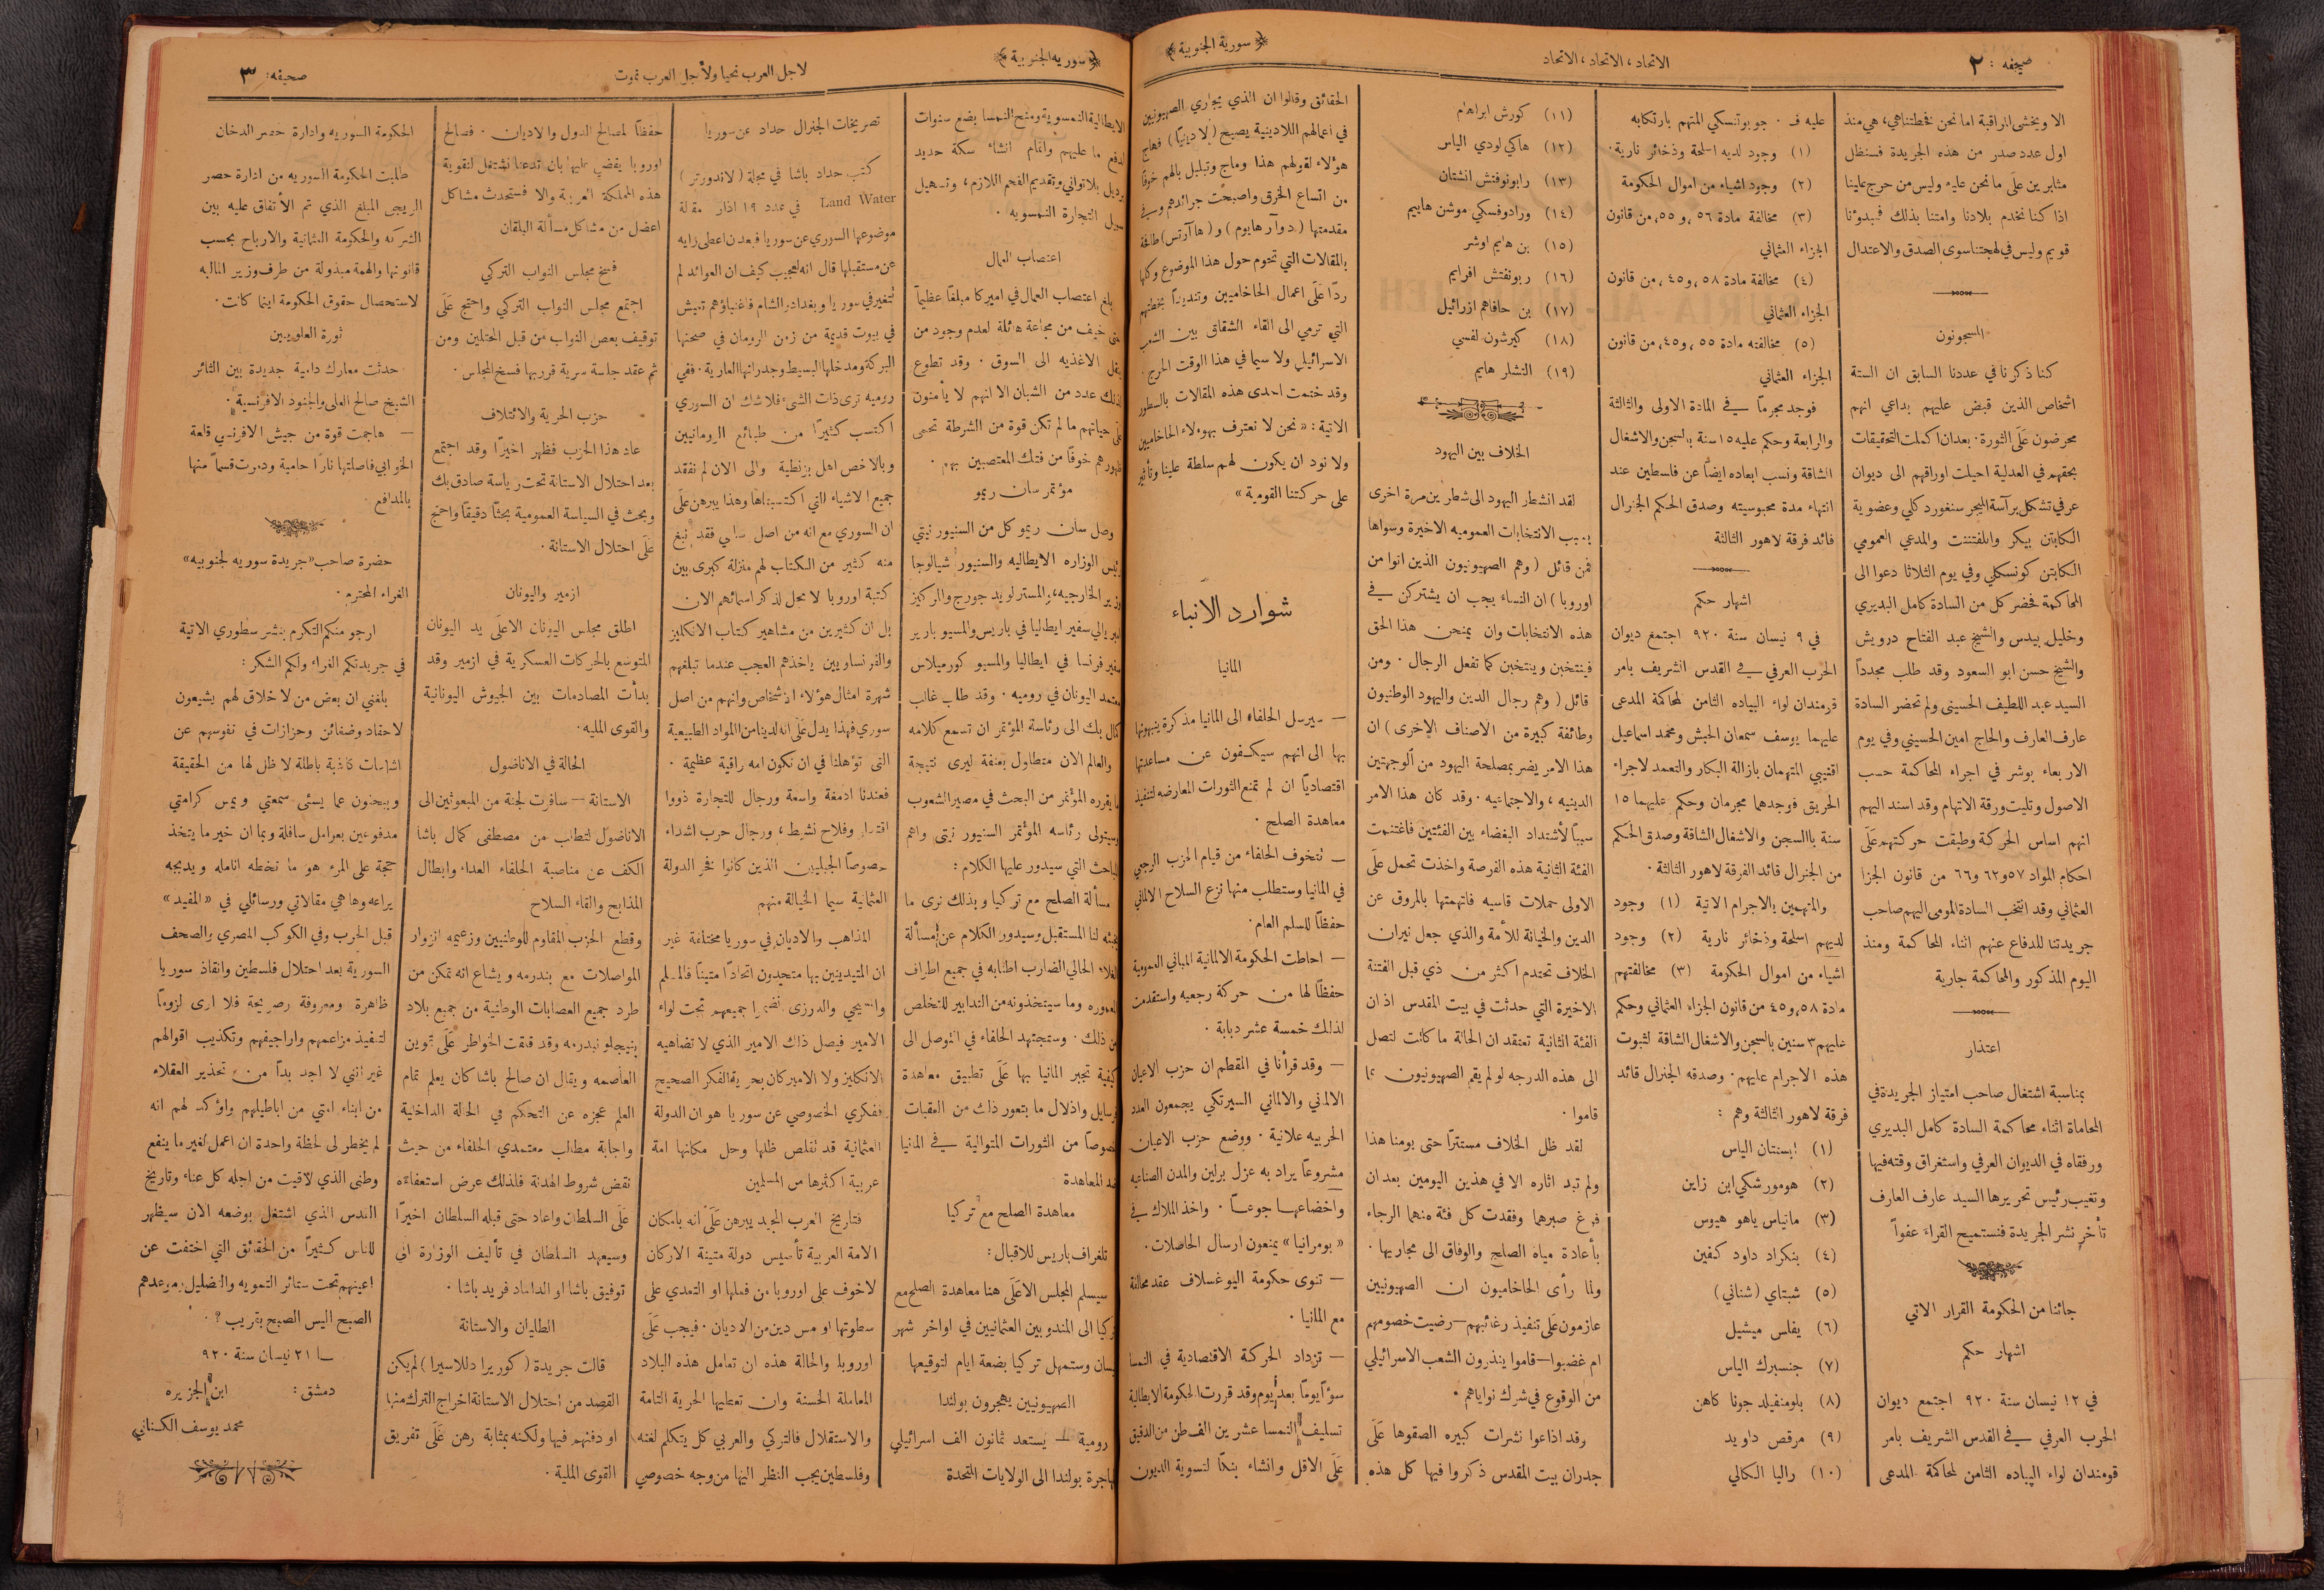 صحيفه : ٢
الاتحاد ، الاتحاد ، الاتحاد
﴿ سورية الجنوبية ﴾
الا ويخشى المراقبة اما نحن فخطتنا هي ، هي منذ
اول عدد صدر من هذه الجريدة فسنظل
مثابرين عَلَى ما نحن عليه وليس من حرج علينا
اذا كنا نخدم بلادنا وامتنا بذلك فمبدؤنا
قويم وليس في لهجتنا سوى الصدق والاعتدال
المسجونون
كنا ذكرنا في عددنا السابق ان الستة
اشخاص الذين قبض عليهم بداعي انهم
محرضون عَلَى الثورة . بعد ان اكملت التحقيقات
بحقهم في العدلية احيلت اوراقهم الى ديوان
عرفي تشكل برآسة الميجر سنغورد كلي وعضوية
الكابتن بيكر واللفتننت والمدعي العمومي
الكابتن كونسكلي وفي يوم الثلاثا دعوا الى
المحاكمة فحضر كل من السادة كامل البديري
وخليل بيدس والشيخ عبد الفتاح درويش
والشيخ حسن ابو السعود وقد طلب مجدداً
السيد عبد اللطيف الحسيني ولم تحضر السادة
عارف العارف والحاج امين الحسيني وفي يوم
الاربعاء بوشر في اجراء المحاكمة حسب
الاصول وتليت ورقة الاتهام وقد اسند اليهم
انهم اساس الحركة وطبقت حركتهم عَلَى
احكام المواد ٥٧ و٦٢ و٦٦ من قانون الجزا
العثماني وقد انتخب السادة المومى اليهم صاحب
جريدتنا للدفاع عنهم اثناء المحاكمة ومنذ
اليوم المذكور والمحاكمة جارية
اعتذار
بمناسبة اشتغال صاحب امتياز الجريدة في
المحاماة اثناء محاكمة السادة كامل البديري
ورفقاه في الديوان العرفي واستغراق وقته فيها
وتغيب رئيس تحريرها السيد عارف العارف
تأخر نشر الجريدة فنستميح القراء عفواً
جائنا من الحكومة القرار الاتي
اشهار حكم
في ١٢ نيسان سنة ٩٢٠ اجتمع ديوان
الحرب العرفي في القدس الشريف بامر
قومندان لواء البياده الثامن لمحاكمة المدعى
عليه ف . جوبوتنسكي المتهم بارتكابه
(١) وجود لديه اسلحة وذخائر نارية .
(٢) وجود اشياء من اموال الحكومة
(٣) مخالفة مادة ٥٦ ، و ٥٥ ، من قانون
الجزاء العثماني
(٤) مخالفة مادة ٥٨ ، و ٤٥ ، من قانون
الجزاء العثماني
(٥) مخالفته مادة ٥٥ ، و ٤٥ ، من قانون
الجزاء العثماني
فوجد مجرماً في المادة الاولى والثالثة
والرابعة وحكم عليه ١٥ سنة بالسجن والاشغال
الشاقة ونسب ابعاده ايضاً عن فلسطين عند
انتهاء مدة محبوسيته وصدق الحكم الجنرال
قائد فرقة لاهور الثالثة
اشهار حكم
في ٩ نيسان سنة ٩٢٠ اجتمع ديوان
الحرب العرفي في القدس الشريف بامر
قرمندان لواء البياده الثامن لمحاكمة المدعى
عليهما يوسف سمعان الحبش ومحمد اسماعيل
اقتيبي المتهمان بازالة البكار والتعمد لاجراء
الحريق فوجدهما مجرمان وحكم عليهما ١٥
سنة باالسجن والاشغال الشاقة وصدق الحكم
من الجنرال قائد الفرقة لاهور الثالثة .
والمتهمين بالاجرام الاتية (١) وجود
لديهم اسلحة وذخائر نارية (٢) وجود
اشياء من اموال الحكومة (٣) مخالفتهم
مادة ٥٨ ، و ٤٥ من قانون الجزاء العثماني وحكم
عليهم ٣ سنين بالسجن والاشغال الشاقة لثبوت
هذه الاجرام عليهم . وصدقه الجنرال قائد
فرقة لاهور الثالثة وهم :
(١) ابستتان الياس
(٢) هومورشكي ابن زاين
(٣) مانياس ياهو هيوس
(٤) بنكراد داود كفين
(٥) شبتاي (شناني)
(٦) يفلس ميشيل
(٧) جنسبرك الياس
(٨) بلومنفيلد جونا كاهن
(٩) مرقص داويد
(١٠) راليا الكالي
(١١) كورش ابراهام
(١٢) هاكي لودي الياس
(١٣) رابونوفتش انشتان
(١٤) ورادوفسكي موشن هاييم
(١٥) بن هايم اوشر
(١٦) ربونفتش افرايم
(١٧) بن حافاهم ازرائيل
(١٨) كيرشون لفسي
(١٩) التشلر هايم
الخلاف بين اليهود
لقد انشطر اليهود الى شطرين مرة اخرى
بسبب الانتخابات العموميه الاخيرة وسواها
فمن قائل ( وهم الصهيونيون الذين اتوا من
اوروبا ) ان النساء يجب ان يشتركن في
هذه الانتخابات وان يمنحن هذا الحق
فينتخبن وينتخبن كما تفعل الرجال . ومن
قائل ( وهم رجال الدين واليهود الوطنيون
وطائفة كبيرة من الاصناف الاخرى ) ان
هذا الامر يضر بمصلحة اليهود من الوجهتين
الدينيه ، والاجتماعيه . وقد كان هذا الامر
سبباً لأشتداد البغضاء بين الفئتين فاغتنمت
الفئة الثانية هذه الفرصة واخذت تحمل عَلَى
الاولى حملات قاسيه فاتهمتها بالمروق عن
الدين والخيانة للأمة والذي جعل نيران
الخلاف تحتدم اكثر من ذي قبل الفتنة
الاخيرة التي حدثت في بيت المقدس اذ ان
الفئة الثانية تعتقد ان الحالة ما كانت لتصل
الى هذه الدرجه لو لم يقم الصهيونيون بما
قاموا .
لقد ظل الخلاف مستتراً حتى يومنا هذا
ولم تبد اثاره الا في هذين اليومين بعد ان
فرغ صبرهما وفقدت كل فئة منهما الرجاء
بأعادة مياه الصلح والوفاق الى مجاريها .
ولما رأى الحاخاميون ان الصهيونيين
عازمون عَلَى تنفيذ رغائبهم — رضيت خصومهم
ام غضبوا — قاموا ينذرون الشعب الاسرائيلي
من الوقوع في شرك نواياهم .
وقد اذاعوا نشرات كبيره الصقوها عَلَى
جدران بيت المقدس ذكروا فيها كل هذه
الحقائق وقالوا ان الذي يجاري الصهيونيين
في اعمالهم اللادينية يصبح ( لا دينياً ) فهاج
هؤلاء لقولهم هذا وماج وتبلبل بالهم خوفاً
من اتساع الخرق واصبحت جرائدهم وفي
مقدمتها ( دوآر هايوم ) و ( هاآرتس ) طافحة
بالمقالات التي تحوم حول هذا الموضوع وكلها
ردّاً عَلَى اعمال الحاخاميين وتنديداً بخطتهم
التي ترمي الى القاء الشقاق بين الشعب
الاسرائيلي ولا سيما في هذا الوقت الحرج .
وقد ختمت احدى هذه المقالات بالسطور
الاتية : « نحن لا نعترف بهوءلاء الحاخاميين
ولا نود ان يكون لهم سلطة علينا وتأثير
على حركتنا القومية »
شوارد الانباء
المانيا
— سيرسل الحلفاء الى المانيا مذكرة ينبهونها
بها الى انهم سيكفون عن مساعدتها
اقتصاديّاً ان لم تمنع الثورات المعارضه لتنفيذ
معاهدة الصلح .
— تتخوف الحلفاء من قيام الحزب الرجعي
في المانيا وستطلب منها نزع السلاح الالماني
حفظاً للسلم العام .
— احاطت الحكومة الالمانية المباني العمومية
حفظاً لها من حركة رجعيه واستقدمت
لذلك خمسة عشر دبابة .
— وقد قرأنا في المقطم ان حزب الاعيان
الالماني والالماني السيرتكي يجمعون العدد
الحربيه علانية . ووضع حزب الاعيان
مشروعاً يراد به عزل برلين والمدن الصناعيه
واخضاعها جوعاً . واخذ الملاك في
« بومرانيا » يمنعون ارسال الحاصلات .
— تنوى حكومة اليوغسلاف عقد محالفة
مع المانيا .
— تزداد الحركة الاقتصادية في النمسا
سوءاً يوماً بعد يوم وقد قررت الحكومة الايطالية
تسليف النمسا عشرين الف طن من الدقيق
عَلَى الاقل وانشاء بنكاً لتسوية الديون
﴿ سوريه الجنوبية ﴾
لاجل العرب نحيا ولأجل العرب نموت
صحيفه : ٣
الايطالية النمسوية ومنح النمسا بضع سنوات
لدفع ما عليهم واتمام انشاء سكة حديد
بلاتواني وتقديم الفحم اللازم ، وتسهيل
التجارة النمسويه .
اعتصاب العمال
بلغ اعتصاب العمال في اميركا مبلغاً عظيماً
خيف من مجاعة هائلة لعدم وجود من
ينقل الاغذيه الى السوق . وقد تطوع
لذلك عدد من الشبان الا انهم لا يأمنون
حياتهم ما لم تكن قوة من الشرطة تحمى
ظهورهم خوفاً من فتك المعتصبين بهم .
مؤتمر سان ريمو
وصل سان ريمو كل من السنيور نيتي
رئيس الوزاره الايطاليه والسنيور شيالوجا
وزير الخارجيه ، والمستر لويد جورج والمركيز
امبريالي سفير ايطاليا في باريس والمسيو بارير
سفير فرنسا في ايطاليا والمسيو كورميلاس
معتمد اليونان في روميه . وقد طلب غالب
كمال بك الى رئاسة المؤتمر ان تسمع كلامه
والعالم الان متطاول بعنقه ليرى نتيجة
ما يقرره المؤتمر من البحث في مصير الشعوب
وسيتولى رئاسه المؤتمر السنيور نيتي واهم
المباحث التي سيدور عليها الكلام :
مسألة الصلح مع تركيا وبذلك نرى ما
يخبئه لنا المستقبل وسيدور الكلام عن مسألة
الغلاء الحالي الضارب اطنابه في جميع اطراف
المعموره وما سيتخذونه من التدابير للتخلص
من ذلك . وستجتهد الحلفاء في التوصل الى
كيفية تجبر المانيا بها عَلَى تطبيق معاهدة
فرسايل واذلال ما يتعور ذلك من العقبات
خصوصاً من الثورات المتوالية في المانيا
ضد المعاهدة
معاهدة الصلح مع تركيا
تلغراف باريس للاقبال :
سيسلم المجلس الاعَلَى هنا معاهدة الصلح مع
تركيا الى المندوبين العثمانيين في اواخر شهر
نيسان وستمهل تركيا بضعة ايام لتوقيعها
الصهيونيين يهجرون بولندا
رومية — يستعد ثمانون الف اسرائيلي
لمهاجرة بولندا الى الولايات المتحدة
تصريحات الجنرال حداد عن سوريا
كتب حداد باشا في مجلة ( لاندورتر )
Land Water في عدد ١٩ اذار مقالة
موضوعها السوري عن سوريا فبعد ان اعطى رايه
عن مستقبلها قال انه لعجيب كيف ان العوائد لم
تتغير في سوريا وبغداد والشام فاغنياؤهم تعيش
في بيوت قديمة من زمن الرومان في صحنها
البركة ومدخلها البسيط وجدرانها العارية . ففي
روميه ترى ذات الشيء فلا شك ان السوري
اكتسب كثيراً من طبائع الرومانيين
وبالاخص اهل بزنطية والى الان لم نفقد
جميع الاشياء التي اكتسبناها وهذا يبرهن عَلَى
ان السوري مع انه من اصل سامي فقد نبغ
منه كثير من الكتاب لهم منزلة كبرى بين
كتبة اوروبا لا محل لذكر اسمائهم الان
بل ان كثيرين من مشاهير كتاب الانكليز
والفرنساويين ياخذهم العجب عندما تبلغهم
شهرة امثال هؤلاء الاشخاص وانهم من اصل
سوري فهذا يدل عَلَى انه لدينا من المواد الطبيعية
التي تؤهلنا في ان نكون امه راقية عظيمة .
فعندنا ادمغة واسعة ورجال للتجارة ذووا
اقتدار وفلاح نشيط ، ورجال حرب اشداء
خصوصاً الجبليين الذين كانوا فخر الدولة
العثمانية سيما الخيالة منهم
المذاهب والاديان في سوريا مختلفة غير
ان المتيدينين بها متحدون اتحاداً متيناً فالمسلم
والمسيحي والدرزي انضموا جميعهم تحت لواء
الامير فيصل ذلك الامير الذي لا تضاهيه
الانكليز ولا الاميركان بحرية الفكر الصحيح
ففكري الخصوصي عن سوريا هو ان الدولة
العثمانية قد تقلص ظلها وحل مكانها امة
عربية اكثرها من المسلمين
فتاريخ العرب الجيد يبرهن عَلَى انه بامكان
الامة العربية تأسيس دولة متينة الاركان
لا خوف على اوروبا من فعلها او التعدي على
سطوتها او مس دين من الاديان . فيجب عَلَى
اوروبا والحالة هذه ان تعامل هذه البلاد
المعاملة الحسنة وان تعطيها الحرية التامة
والاستقلال فالتركي والعربي كل يتكلم لغته
وفلسطين يجب النظر اليها من وجه خصوصي
حفظاً لمصالح الدول والاديان . فصالح
اوروبا يقضي عليها بان تدعنا نشتغل لتقوية
هذه المملكة العربية والا فستحدث مشاكل
اعضل من مشاكل مسألة البلقان
فسخ مجلس النواب التركي
اجتمع مجلس النواب التركي واحتج عَلَى
توقيف بعض النواب من قبل المحتلين ومن
ثم عقد جلسة سرية قرر بها فسخ المجلس .
حزب الحرية والائتلاف
عاد هذا الحزب فظهر اخيراً وقد اجتمع
بعد احتلال الاستانة تحت رياسة صادق بك
وبحث في السياسة العمومية بحثاً دقيقاً واحتج
عَلَى احتلال الاستانة .
ازمير واليونان
اطلق مجلس اليونان الاعلى يد اليونان
المتوسع بالحركات العسكرية في ازمير وقد
بدأت المصادمات بين الجيوش اليونانية
والقوى المليه .
الحالة في الاناضول
الاستانة — سافرت لجنة من المبعوثين الى
الاناضول لتطلب من مصطفى كمال باشا
الكف عن مناصبة الحلفاء العداء وابطال
المذابح والقاء السلاح
وقطع الحزب المقاوم للوطنيين وزعيمه انزوار
المواصلات مع بندرمه ويشاع انه تمكن من
طرد جميع العصابات الوطنية من جميع بلاد
بنيجلو نبدرمه وقد قلقت الخواطر عَلَى تموين
العاصمه ويقال ان صالح باشا كان يعلم تمام
العلم عجزه عن التحكم في الحالة الداخلية
واجابة مطالب معتمدي الحلفاء من حيث
نقض شروط الهدنة فلذلك عرض استعفاءه
عَلَى السلطان واعاد حتى قبله السلطان اخيراً
وسيعهد السلطان في تأليف الوزارة الى
توفيق باشا او الداماد فريد باشا .
الطليان والاستانة
قالت جريدة ( كوريرا دللاسيرا ) لم يكن
القصد من احتلال الاستانة اخراج الترك منها
او دفنهم فيها ولكنه بمثابة رهن عَلَى تفريق
القوى الملية .
الحكومة السوريه وادارة حصر الدخان
طلبت الحكومة السوريه من ادارة حصر
الريجي المبلغ الذي تم الأتفاق عليه بين
الشركه والحكومة العثمانية والارباح بحسب
قانونها والهمة مبذولة من طرف وزير المالبه
لاستحصال حقوق الحكومة اينما كانت .
ثورة العلويين
حدثت معارك دامية جديدة بين الثائر
الشيخ صالح العلي والجنود الافرنسية .
— هاجمت قوة من جيش الافرنسي قلعة
الخوابي فاصلتها ناراً حامية ودمرت قسماً منها
بالمدافع .
حضرة صاحب « جريدة سوريه لجنوبيه »
الغراء المحترم .
ارجو منكم التكرم بنشر سطوري الاتية
في جريدتكم الغراء ولكم الشكر :
بلغني ان بعض من لا خلاق لهم يشيعون
لاحقاد وضغائن وحزازات في نفوسهم عن
اشاعات كاذبة باطلة لا ظل لها من الحقيقة
ويبحثون عما يسئ سمعتي ويمس كرامتي
مدفوعين بعوامل سافلة وبما ان خير ما يتخذ
حجة على المرء هو ما تخطه انامله ويدبجه
يراعه وها هي مقالاتي ورسائلي في « المفيد »
قبل الحرب وفي الكوكب المصري والصحف
السورية بعد احتلال فلسطين وانقاذ سوريا
ظاهرة ومعروفة رصريحة فلا ارى لزوماً
لتنفيذ مزاعمهم واراجيفهم وتكذيب اقوالهم
غير انني لا اجد بداً من تحذير العقلاء
من ابناء امتي من اباطيلهم واؤكد لهم انه
لم يخطر لي لحظة واحدة ان اعمل لغير ما ينفع
وطني الذي لاقيت من اجله كل عناء وتاريخ
القدس الذي اشتغل بوضعه الان سيظهر
للناس كثيراً من الحقائق التي اختفت عن
اعينهم تحت ستائر التمويه والتضليل وموعدهم
الصبح اليس الصبح بقريب ؟ .
٢١ نيسان سنة ٩٢٠
دمشق : ابن الجزيره
محمد يوسف الكناني